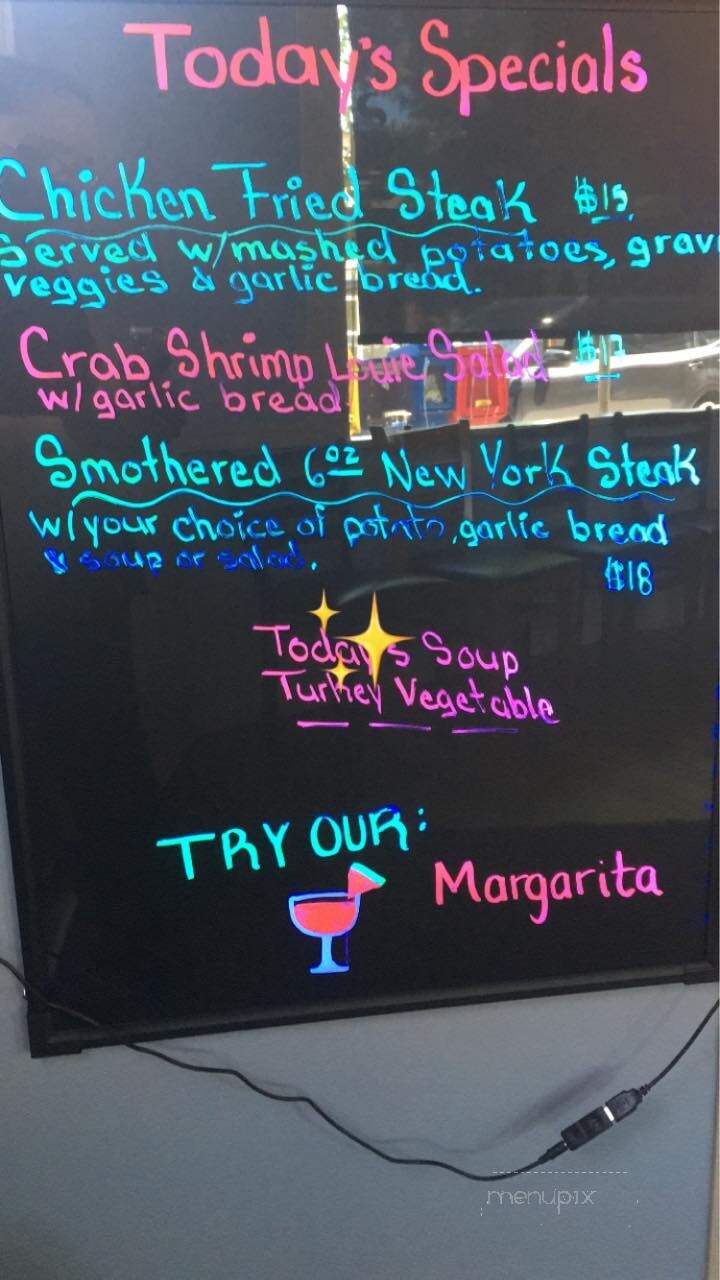 Today's Specials
Chicken Fried Steak $15
Served w/mashed potatoes, grav
veggies & garlic bread.
Crab Shrimp Louie Salad
w/garlic bread
Smothered 6oz New York Steak
w/your choice of potato, garlic bread
& soup or salad.
$18
Today's Soup
Turkey Vegetable
TRY OUR:
Margarita
menupix